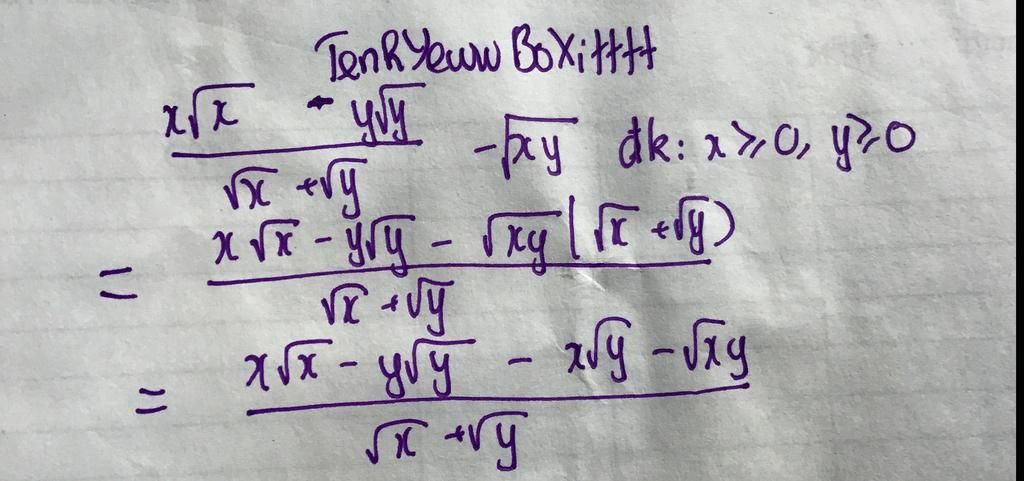 TenRYeww BoXitttt
\frac{x\sqrt{x} - y\sqrt{y}}{\sqrt{x} + \sqrt{y}} - \sqrt{xy} đk: x ≥ 0, y ≥ 0
= \frac{x\sqrt{x} - y\sqrt{y} - \sqrt{xy}(\sqrt{x} + \sqrt{y})}{\sqrt{x} + \sqrt{y}}
= \frac{x\sqrt{x} - y\sqrt{y} - x\sqrt{y} - \sqrt{x}y}{\sqrt{x} + \sqrt{y}}